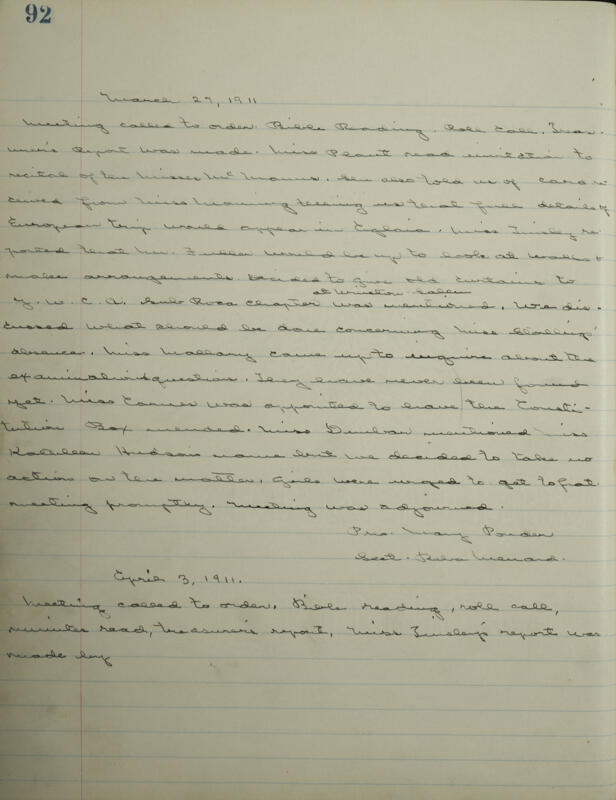 92
March 27, 1911
Meeting called to order. Bible Reading. Roll Call. Treas-
urer's Report was made. Miss Plant read invitation to
recital of the Misses McManus. She also told us of card re-
ceived from Miss Manning telling us that full details of
European trip would appear in Miss Tinsley re-
ported that Mr. would be up to look at walls &
make arrangements. Decided to give old curtains to
at Winston Salem
Y. W. C. A. Sub Rosa chapter was mentioned. We dis-
cussed what should be done concerning Miss
absence. Miss Mallary came up to inquire about the
examination question. They have never been found
yet. Miss was appointed to have the Consti-
tution Box mended. Miss Dunbar mentioned Miss
Kathleen Hudson name but we decided to take no
action on the matter. Girls were urged to get to frat.
meeting promptly. Meeting was adjourned.
Pres. Mary Ponder
Sect. Reba Menard.
April 3, 1911.
Meeting called to order. Bible reading, roll call,
minutes read, treasurer's report, Miss Tinsley's report was
made by